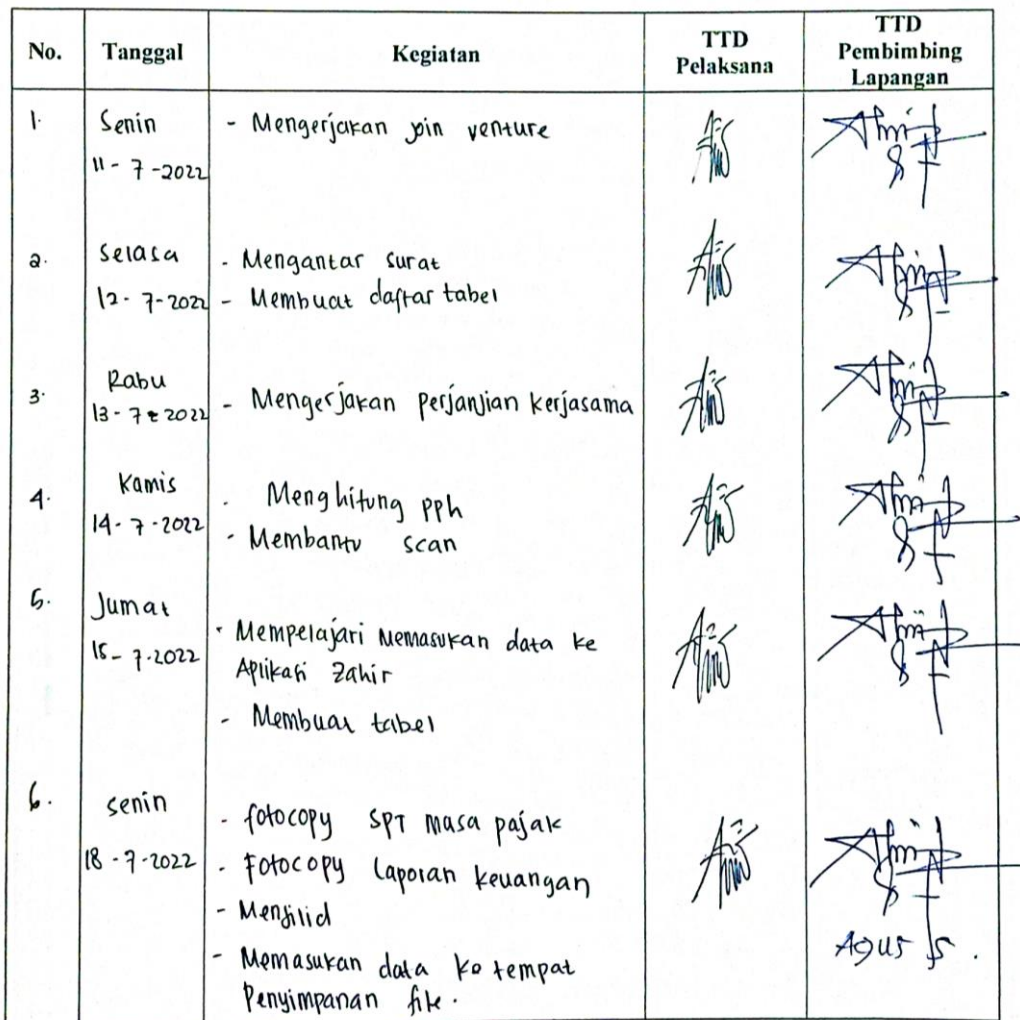 No. Tanggal Kegiatan TTD Pelaksana TTD Pembimbing Lapangan
1. Senin - Mengerjakan join venture
11-7-2022
2. Selasa - Mengantar surat
12-7-2022 - Membuat daftar tabel
3. Rabu
13-7-2022 - Mengerjakan perjanjian kerjasama
4. Kamis - Menghitung pph
14-7-2022 - Membantu scan
5. Jumat
15-7-2022 - Mempelajari Memasukan data ke
Aplikasi Zahir
- Membuat tabel
6. senin
- fotocopy SPT masa pajak
18-7-2022 - Fotocopy Laporan keuangan
- Menjilid
- Memasukan data ke tempat
Penyimpanan file.
Agus S.